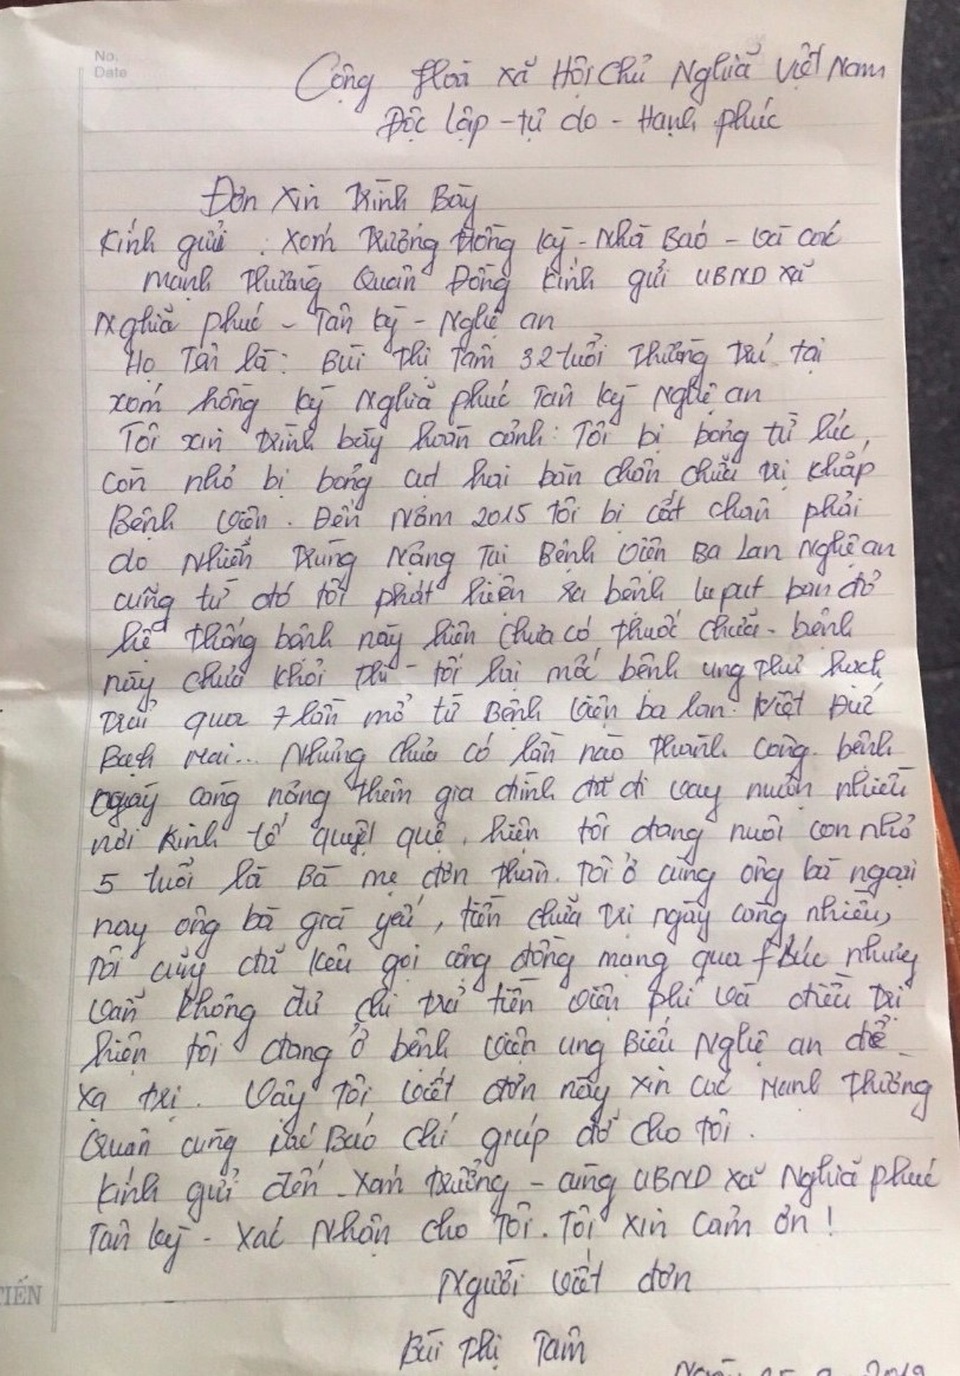 No.
Date
Cộng Hoà xã Hội Chủ Nghĩa Việt Nam
Độc lập - tự do - Hạnh phúc
Đơn Xin Trình Bày
Kính gửi : Xóm Trưởng Hồng Kỳ - Nhà Báo - Và các
mạnh Thường Quân Đồng Kính gửi UBND xã
Nghĩa phúc - Tân kỳ - Nghệ an
Họ Tên là : Bùi Thị Tâm 32 tuổi Thường Trú tại
xóm hồng kỳ Nghĩa phúc Tân kỳ Nghệ an
Tôi xin trình bày hoàn cảnh : Tôi bị bỏng từ lúc,
còn nhỏ bị bỏng cụt hai bàn chân chữa trị khắp
Bệnh viện. Đến Năm 2015 tôi bị cắt chân phải
do nhiễm Trùng Nặng Tại Bệnh viện Ba Lan Nghệ an
cũng từ đó tôi phát hiện ra bệnh luput ban đỏ
hệ thống bệnh này hiện chưa có thuốc chữa - bệnh
này chưa khỏi thì - tôi lại mắc bệnh ung thư hạch
trải qua 7 lần mổ từ Bệnh viện ba lan. Việt Đức
Bạch Mai... Nhưng chưa có lần nào thành công. bệnh
ngày càng nặng thêm gia đình đã đi vay mượn nhiều
nơi kinh tế quyệt quệ. hiện tôi đang nuôi con nhỏ
5 tuổi là Bà mẹ đơn thân. Tôi ở cùng ông bà ngoại
nay ông bà già yếu, tiền chữa trị ngày càng nhiều,
Tôi cũng đã kêu gọi cộng đồng mạng qua nhưng
vẫn không đủ chi trả tiền viện phí và điều trị
hiện tôi đang ở bệnh viện ung Biếu Nghệ an để
xạ trị. Vậy tôi viết đơn này xin các Mạnh Thường
Quân cùng các Báo chí giúp đỡ cho tôi.
Kính gửi đến - Xóm trưởng - cùng UBND xã Nghĩa phúc
Tân kỳ - Xác Nhận cho Tôi. Tôi xin cảm ơn !
Người viết đơn
Bùi Thị Tâm
TIẾN